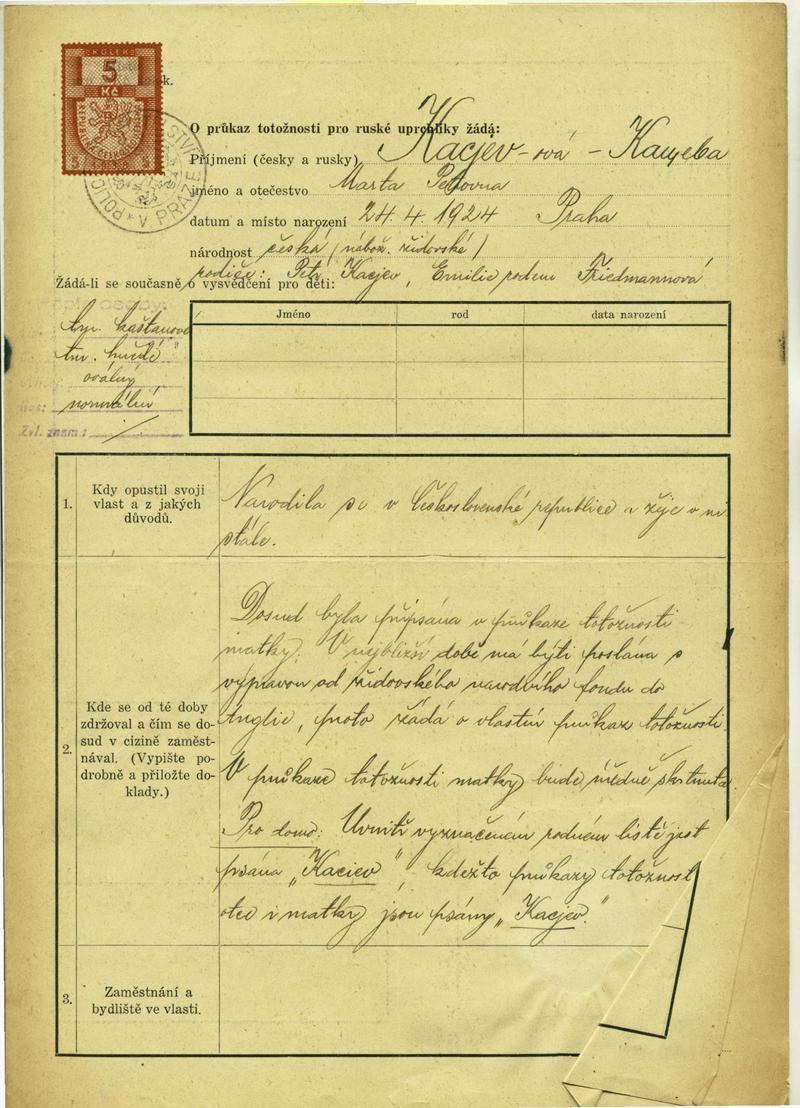 KOLEK
5
Kč
5 1938 5
k.
V PRAZE
O průkaz totožnosti pro ruské uprchlíky žádá:
Příjmení (česky a rusky) Kacjev-ová - Кацуева
jméno a otečestvo Marta Petrovna
datum a místo narození 24. 4. 1924 Praha
národnost česká (nábož. židovské)
rodiče: Petr Kacjev, Emilie rodem Friedmannová
Žádá-li se současně o vysvědčení pro děti:
Jméno rod data narození
kaštanové
tm. hnědé
oválný
normální
Zvl. znam.: /
1. Kdy opustil svoji
vlast a z jakých
důvodů.
Narodila se v Československé republice a žije v ní
stále.
2. Kde se od té doby
zdržoval a čím se do-
sud v cizině zaměst-
nával. (Vypište po-
drobně a přiložte do-
klady.)
Dosud byla připsána v průkaze totožnosti
matky. V nejbližší době má býti poslána s
výpravou od židovského národního fondu do
Anglie, proto žádá o vlastní průkaz totožnosti.
V průkaze totožnosti matky bude úředně škrtnuta.
Pro domo: Uvnitř vyznačeném rodném listě jest
psána „Kaciev", kdežto průkazy totožnost
otce i matky jsou psány „Kacjev."
3. Zaměstnání a
bydliště ve vlasti.